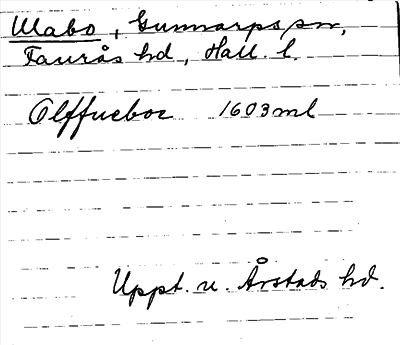 Ulabo, Gunnarps sn,
Faurås hd, Hall. l.
Olffueboe 1603 ml
Uppt. u. Årstads hd.